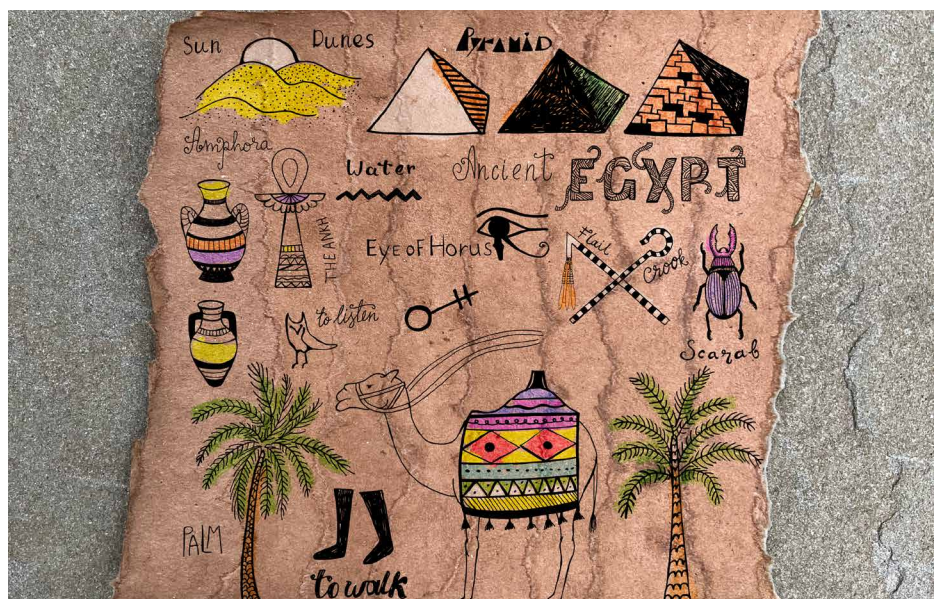 Sun
Dunes
PYRAMID
Amphora
Water
Ancient
EGYPT
THE ANKH
Eye of Horus
flail
crook
to listen
Scarab
PALM
to walk